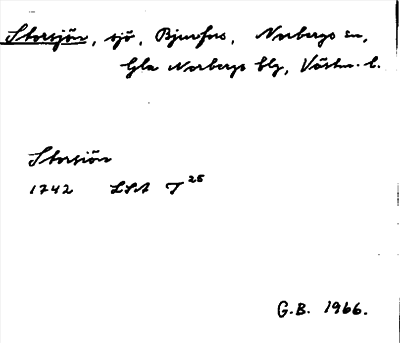 Storsjön, sjö, Bjurfors, Norbergs sn,
Gla Norbergs blg, Västm. l.
Storsiön
1742 LSA T 25
G.B. 1966.